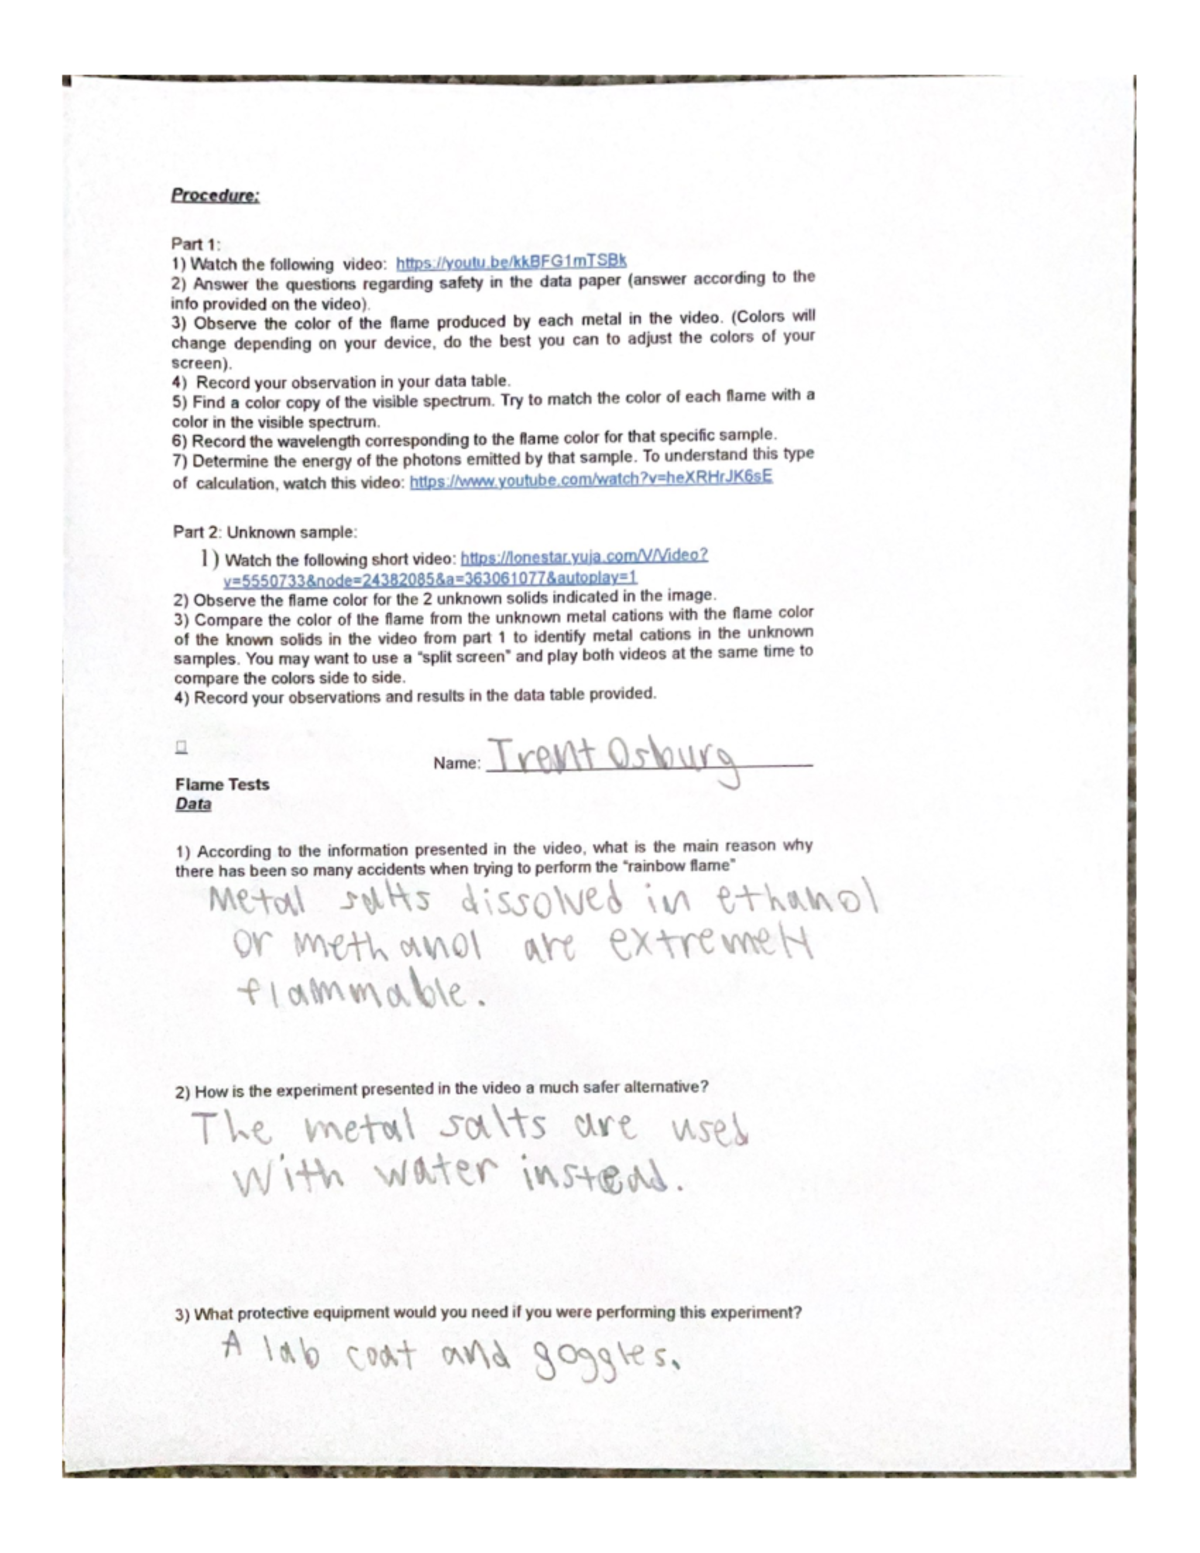 Procedure:
Part 1:
1) Watch the following video: https://youtu.be/kkBFG1mTSBk
2) Answer the questions regarding safety in the data paper (answer according to the
info provided on the video).
3) Observe the color of the flame produced by each metal in the video. (Colors will
change depending on your device, do the best you can to adjust the colors of your
screen).
4) Record your observation in your data table.
5) Find a color copy of the visible spectrum. Try to match the color of each flame with a
color in the visible spectrum.
6) Record the wavelength corresponding to the flame color for that specific sample.
7) Determine the energy of the photons emitted by that sample. To understand this type
of calculation, watch this video: https://www.youtube.com/watch?v=heXRHrJK6sE
Part 2: Unknown sample:
1) Watch the following short video: https://lonestar.yuja.com/V/Video?
v=5550733&node=24382085&a=363061077&autoplay=1
2) Observe the flame color for the 2 unknown solids indicated in the image.
3) Compare the color of the flame from the unknown metal cations with the flame color
of the known solids in the video from part 1 to identify metal cations in the unknown
samples. You may want to use a "split screen" and play both videos at the same time to
compare the colors side to side.
4) Record your observations and results in the data table provided.
Name: Trent Osburg
Flame Tests
Data
1) According to the information presented in the video, what is the main reason why
there has been so many accidents when trying to perform the "rainbow flame"
Metal salts dissolved in ethanol
or methanol are extremely
flammable.
2) How is the experiment presented in the video a much safer alternative?
The metal salts are used
with water instead.
3) What protective equipment would you need if you were performing this experiment?
A lab coat and goggles.